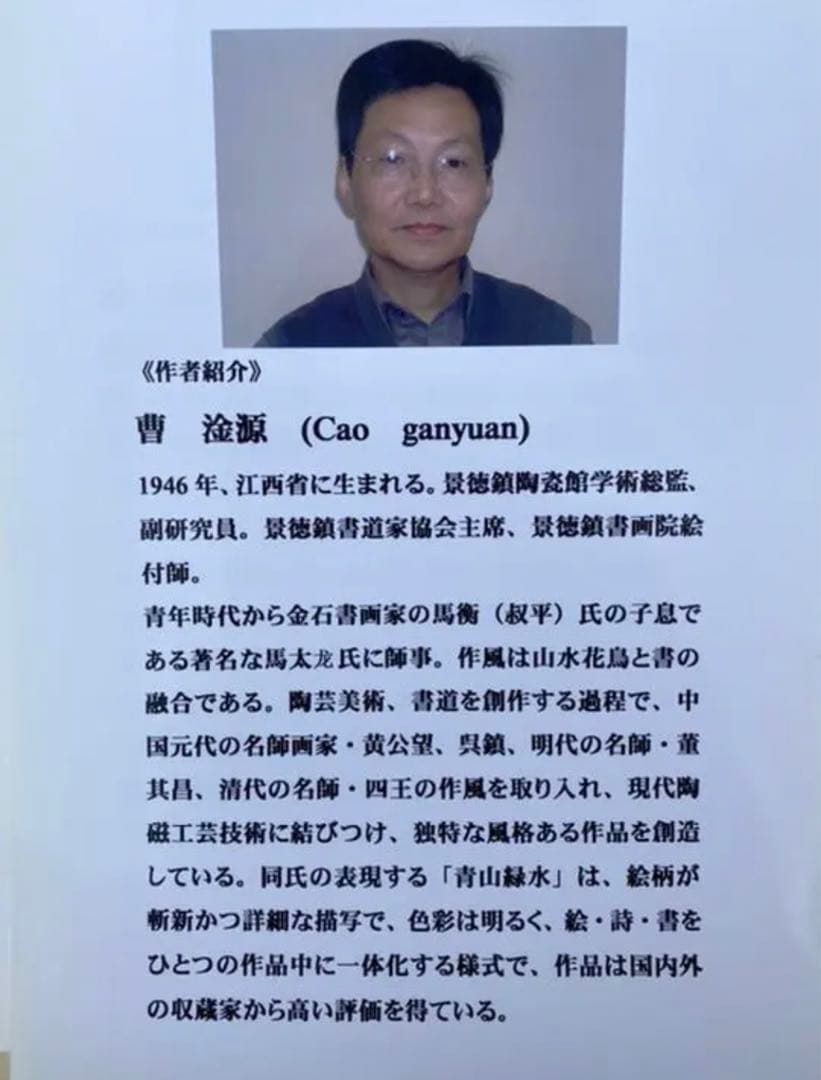 《作者紹介》
曹　淦源　(Cao　ganyuan)
1946 年、江西省に生まれる。景徳鎮陶瓷館学術総監、
副研究員。景徳鎮書道家協会主席、景徳鎮書画院絵
付師。
青年時代から金石書画家の馬衡（叔平）氏の子息で
ある著名な馬太龙氏に師事。作風は山水花鳥と書の
融合である。陶芸美術、書道を創作する過程で、中
国元代の名師画家・黄公望、呉鎮、明代の名師・董
其昌、清代の名師・四王の作風を取り入れ、現代陶
磁工芸技術に結びつけ、独特な風格ある作品を創造
している。同氏の表現する「青山緑水」は、絵柄が
斬新かつ詳細な描写で、色彩は明るく、絵・詩・書を
ひとつの作品中に一体化する様式で、作品は国内外
の収蔵家から高い評価を得ている。